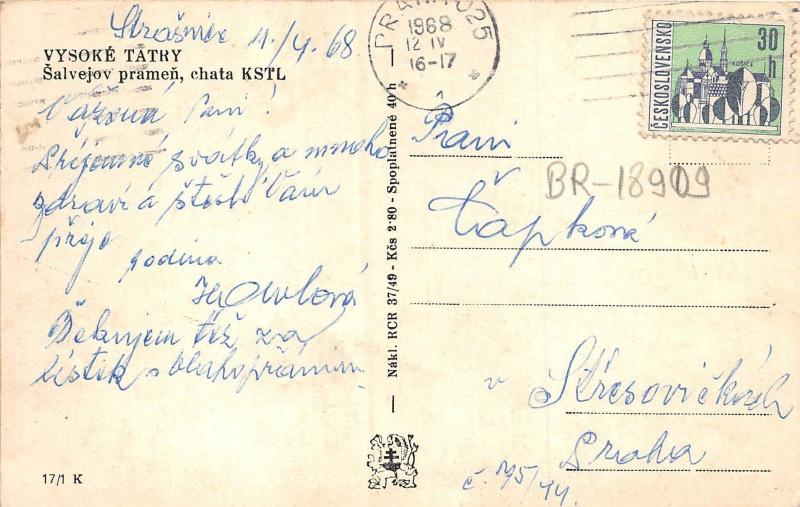 Strašnice 11/4. 68
VYSOKÉ TATRY
Šalvejov prameň, chata KSTL
Vážená Paní!
Příjemné svátky a mnoho
zdraví a štěstí Vám
přeje
rodina
Děkujem též za
lístek s blahopřáním
17/1 K
Nákl. RCR 37/49 - Kčs 2·80 - Spoplatnené 40 h
PRAHA 025
1968
12 IV
16-17
ČESKOSLOVENSKO
30 h
KOŠICE
Paní
BR-18909
Čapková
v Střešovičkách
Praha
č. 75/44